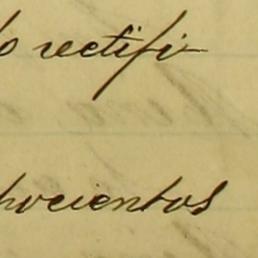 o rectifi-
hocientos